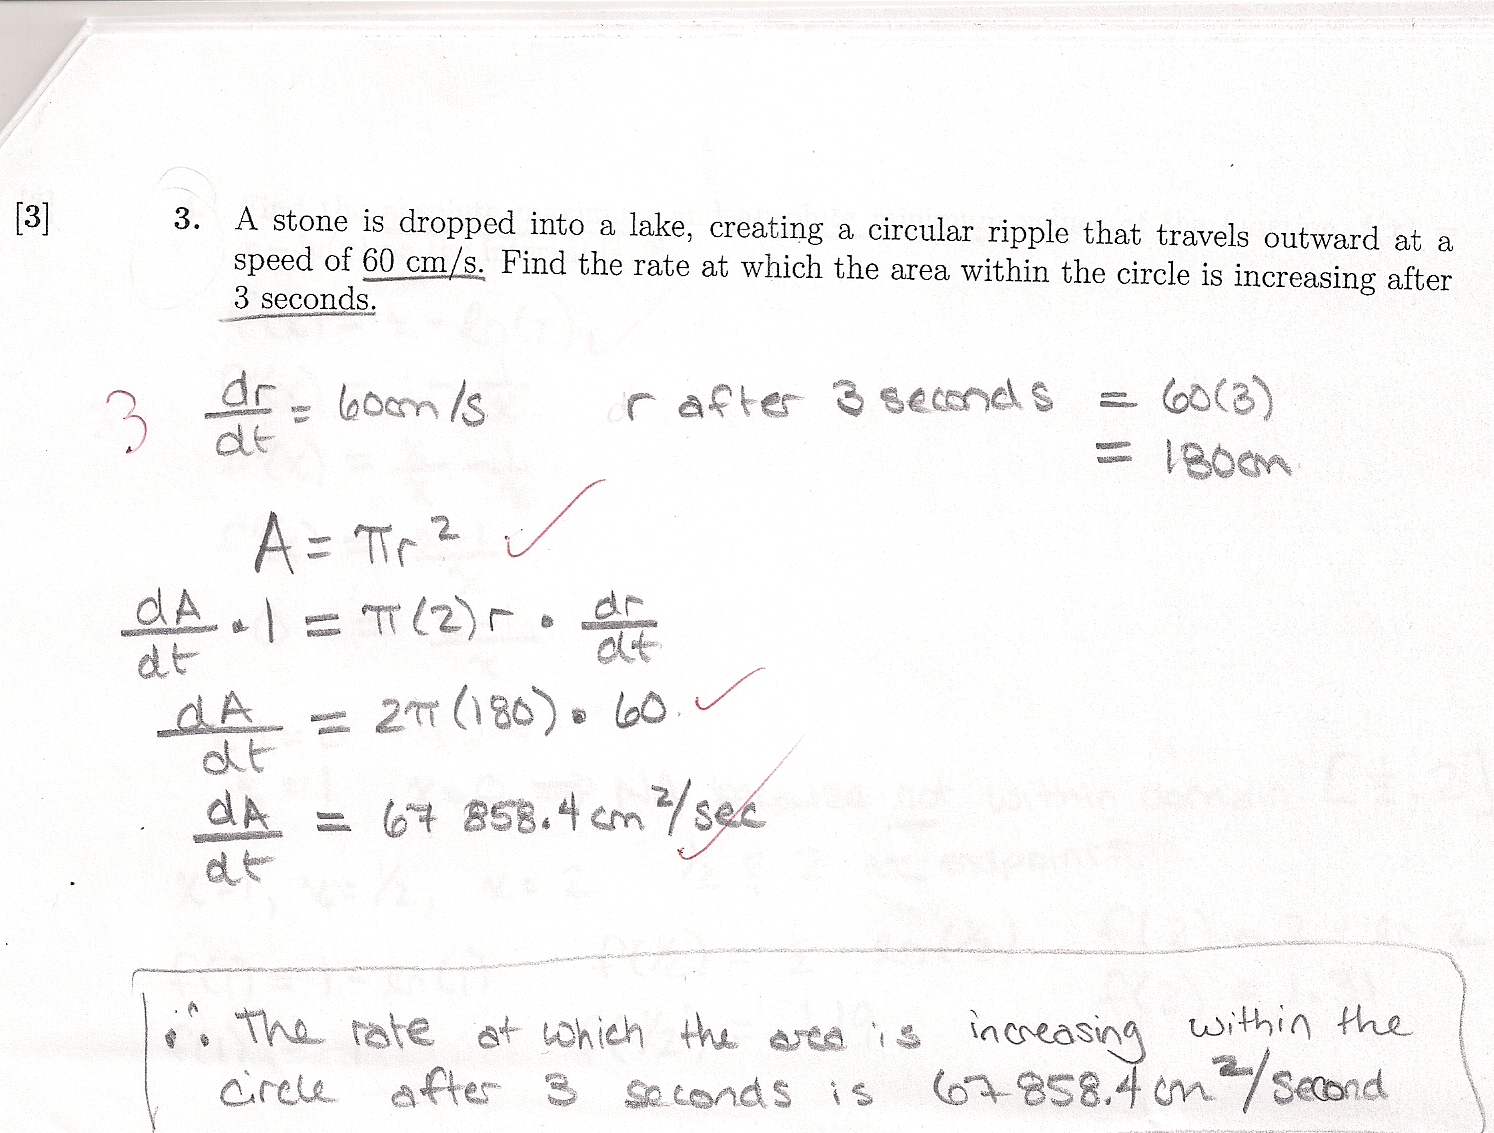 [3] 3. A stone is dropped into a lake, creating a circular ripple that travels outward at a
speed of 60 cm/s. Find the rate at which the area within the circle is increasing after
3 seconds.
3 dr/dt = 60cm/s r after 3 seconds = 60(3)
= 180cm
A = πr²
dA/dt · 1 = π(2)r · dr/dt
dA/dt = 2π(180) · 60
dA/dt = 67 858.4 cm²/sec
∴ The rate at which the area is increasing within the
circle after 3 seconds is 67858.4 cm²/second